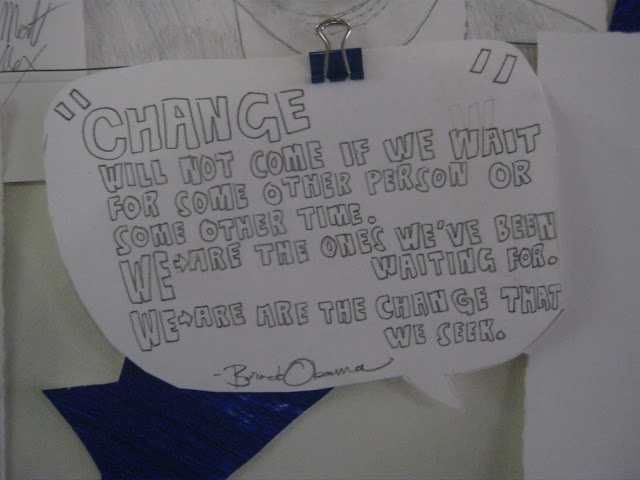 "CHANGE
WILL NOT COME IF WE WAIT
FOR SOME OTHER PERSON OR
SOME OTHER TIME.
WE→ARE THE ONES WE'VE BEEN
WAITING FOR.
WE→ARE ARE THE CHANGE THAT
WE SEEK. "
-Barack Obama